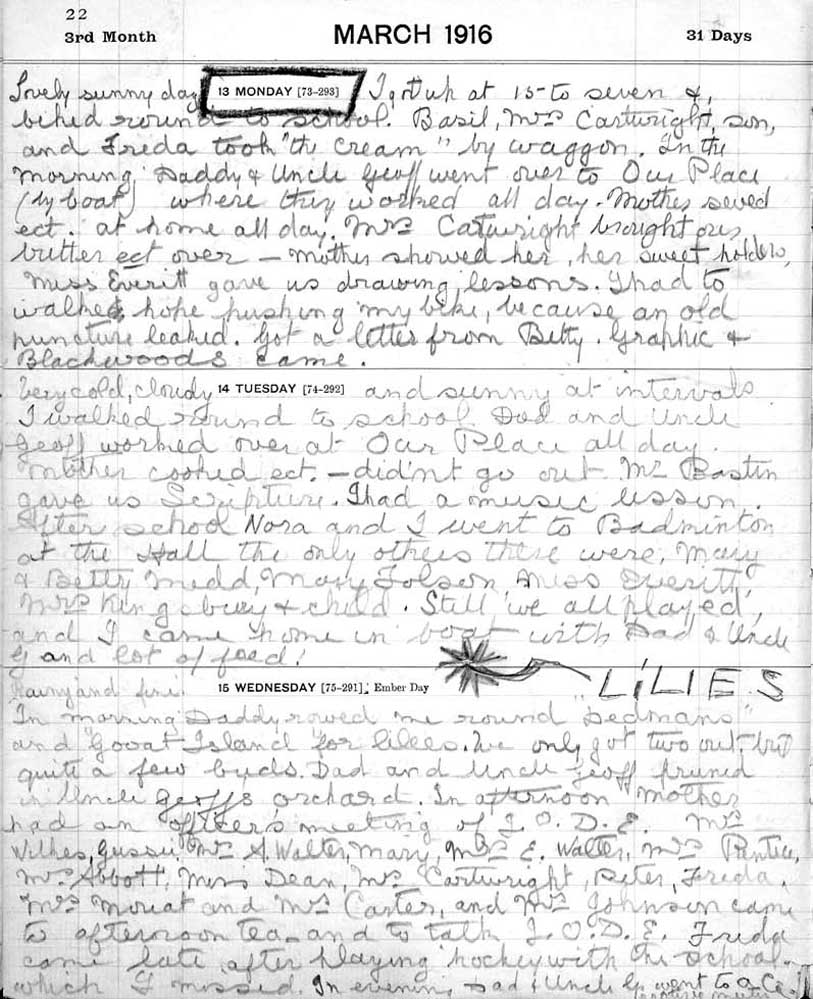 22
3rd Month MARCH 1916 31 Days
Lovely sunny day 13 MONDAY [73-293] I got up at 15 to seven &
biked round to school. Basil, Mrs Cartwright, son,
and Freda took "the cream" by waggon. In the
morning Daddy & Uncle Geoff went over to Our Place
(by boat) where they worked all day. Mother sewed
ect. at home all day. Mrs Catwright brought our
butter ect over – mother showed her, her sweet holders,
Miss Everitt gave us drawing lessons. I had to
walked hope pushing my bike, because an old
puncture leaked. Got a letter from Betty. Graphic &
Blackwoods came.
Very cold, cloudy 14 TUESDAY [74-292] and sunny at intervals
I walked round to school Dad and Uncle
Geoff worked over at Our Place all day.
Mother cooked ect. – did'nt go out. Mr Bastin
gave us Scripture. I had a music lesson.
After school Nora and I went to Badminton
at the Hall the only others there were, Mary
& Betty Midd, Mary Folson, Miss Everitt,
Mrs Kingsbury & child. Still we all played,
and I came home in boat with Dad & Uncle
G and lot of feed!
Rainy and fine 15 WEDNESDAY [75-291] Ember Day LILIES
In morning Daddy rowed me round "Sedmans"
and Goat Island for lilies. We only got two out, but
quite a few buds. Dad and Uncle Geoff pruned
in Uncle Geoffs orchard. In afternoon Mother
had an officer's meeting of I.O.D.E. Mrs
Wilkes, Gussie, Mrs A. Walter, Mary, Mrs E. Walter, Mrs Prentice,
Mrs Abbott, Miss Dean, Mrs Cartwright, Peter, Freda,
Mrs Mouat and Mrs Carter, and Mrs Johnson came
to afternoon tea and to talk I.O.D.E. Freda
came late after playing hockey with the school.
which I missed. In evening Dad & Uncle G. went to a Ce.